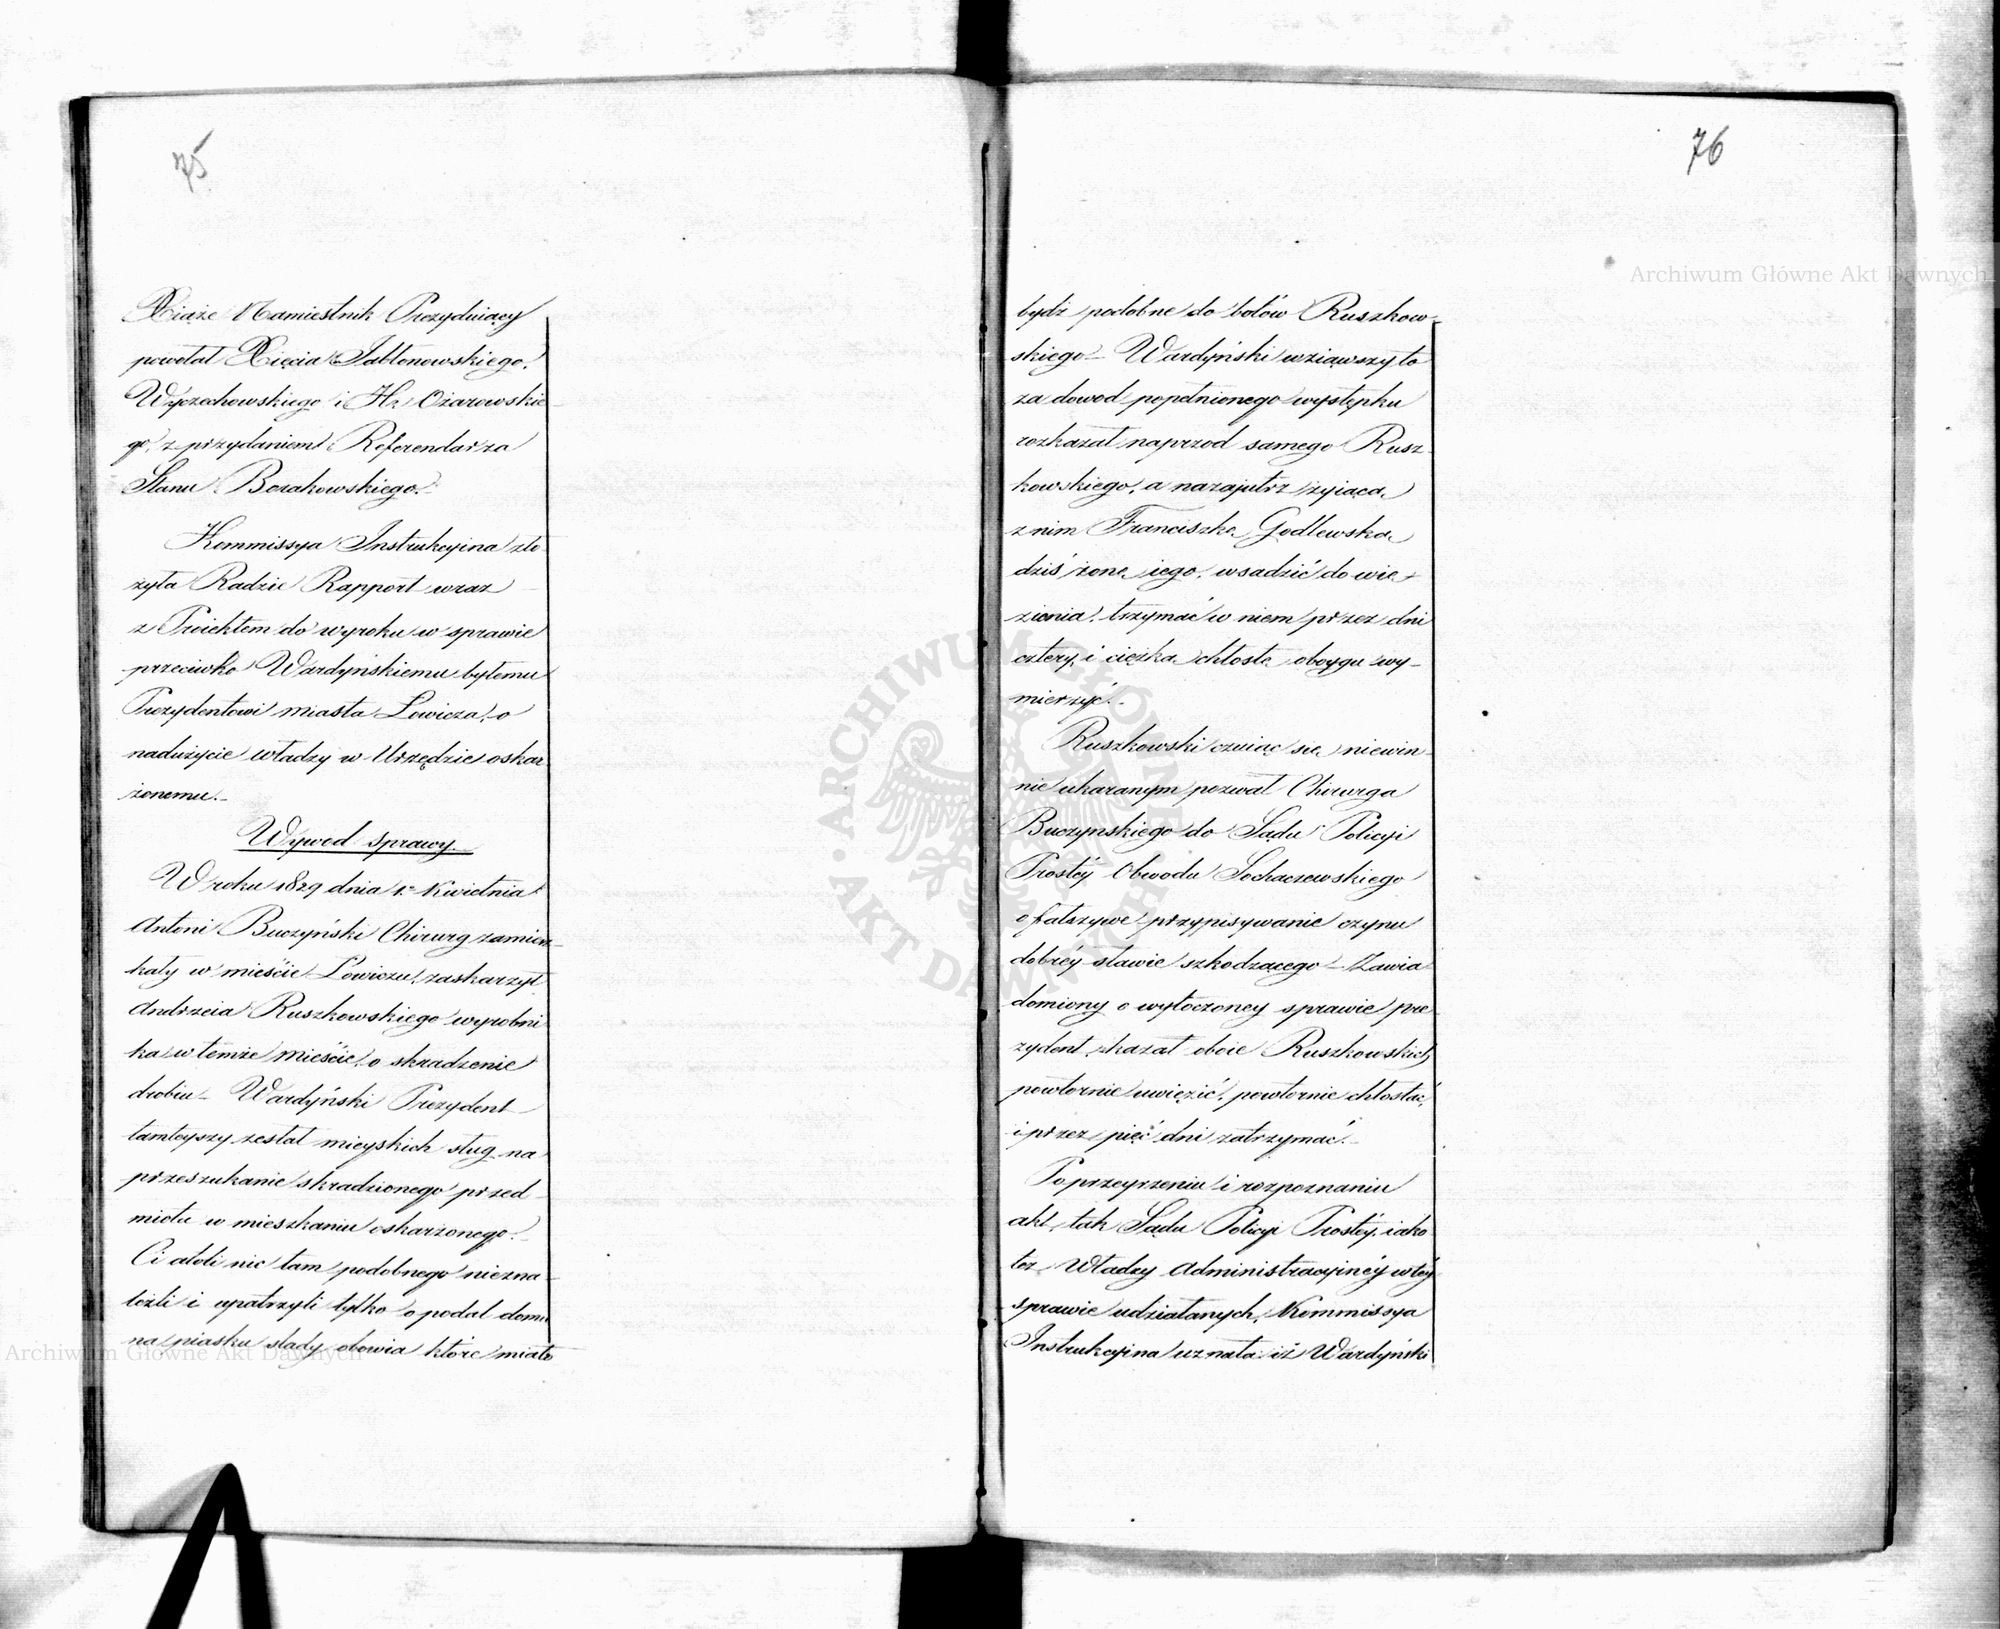 75
Xiąże Namiestnik Prezyduiący
powołał Xięcia Jabłonowskiego,
Wyczechowskiego i Hr. Ożarowskie
go, z przydaniem Referendarza
Stanu Bozakowskiego.
Kommissya Instrukcyina zło
żyła Radzie Rapport wraz
z Proiektem do wyroku w sprawie
przeciwko Wardyńskiemu byłemu
Prezydentowi miasta Łowicza, o
nadużycie władzy w Urzędzie oskar
żonemu.
Wywod sprawy.
W roku 1829 dnia 1. Kwietnia
Antoni Buczyński Chirurg zamiesz
kały w mieście Łowiczu, zaskarżył
Andrzeia Ruszkowskiego wyrobni
ka w temże mieście, o skradzenie
drobiu – Wardyński Prezydent
tamteyszy zesłał mieyskich sług na
przeszukanie skradzionego przed
miotu w mieszkaniu oskarżonego.
Ci atoli nic tam podobnego niezna
leźli i opatrzyli tylko opodal domu
na piasku ślady obowia które miało
76
bydź podobne do botów Ruszkow-
skiego – Wardyński wziąwszy to
za dowod popełnionego występku
rozkazał naprzod samego Rusz
kowskiego, a nazajutrz żyiącą
z nim Franciszkę Godlewską
dziś żonę iego, wsadzić do wię-
zienia, trzymać w niem przez dni
cztery, i ciężką chłostę oboygu wy-
mierzyć.
Ruszkowski czuiąc się niewin
nie ukaranym pozwał Chirurga
Buczynskiego do Sądu Policyi
Prostéy Obwodu Sochaczewskiego
o fałszywe przypisywanie czynu
dobréy sławie szkodzącego – Zawia
domiony o wytoczoney sprawie pre
zydent, kazał oboie Ruszkowskich
powtornie uwięzić, powtornie chłostać,
i przez pięć dni zatrzymać.
Po przeyrzeniu i rozpoznaniu
akt, tak Sądu Policyi Prostéy, iako
też Władzy Administracyinéy w téy
sprawie udziałanych, Kommissya
Instrukcyina uznała: iż Wardyński
Archiwum Główne Akt Dawnych
Archiwum Główne Akt Dawnych
ARCHIWUM GŁÓWNE AKT DAWNYCH